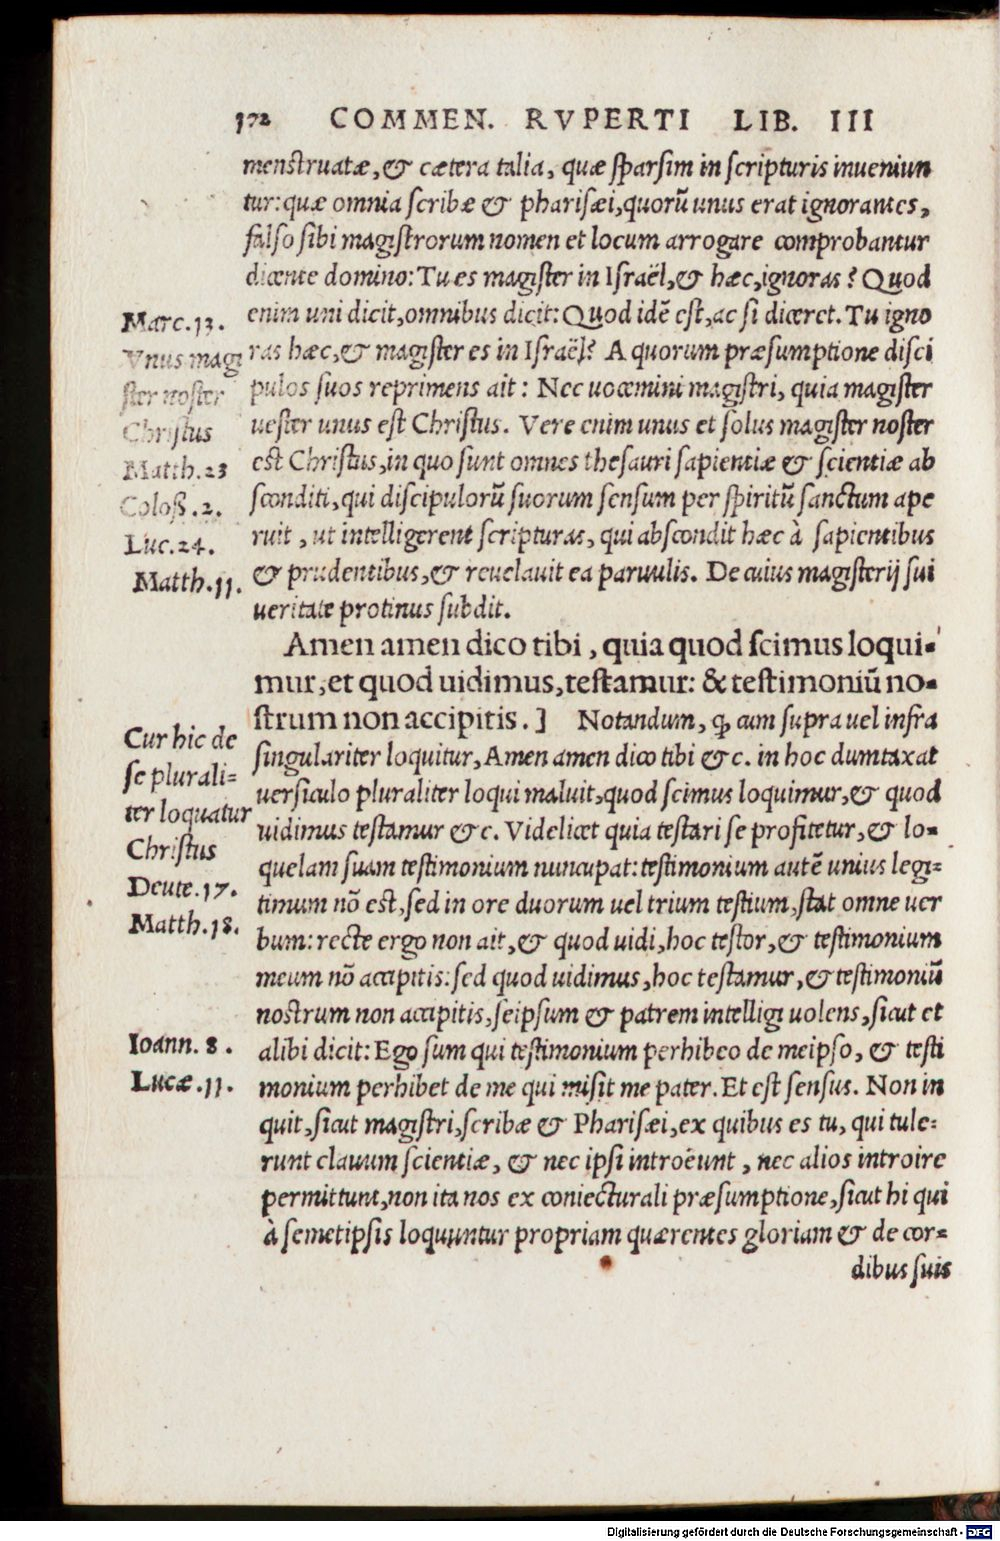 172 COMMEN. RVPERTI LIB. III
menstruatæ, & cætera talia, quæ sparsim in scripturis inueniun
tur: quæ omnia scribæ & pharisæi, quorũ unus erat ignorantes,
falso sibi magistrorum nomen et locum arrogare comprobantur
dicente domino: Tu es magister in Israël, & hæc, ignoras? Quod
enim uni dicit, omnibus dicit: Quod idẽ est, ac si diceret. Tu igno
ras hæc, & magister es in Israël? A quorum præsumptione disci
pulos suos reprimens ait: Nec uocemini magistri, quia magister
uester unus est Christus. Vere enim unus et solus magister noster
est Christus, in quo sunt omnes thesauri sapientiæ & scientiæ ab
sconditi, qui discipulorũ suorum sensum per spiritũ sanctum ape
ruit, ut intelligerent scripturas, qui abscondit hæc à sapientibus
& prudentibus, & reuelauit ea paruulis. De cuius magisterij sui
ueritate protinus subdit.
Marc.13.
Vnus magi
ster noster
Christus
Matth.23
Coloß.2.
Luc.24.
Matth.11.
Amen amen dico tibi, quia quod scimus loqui-
mur, et quod uidimus, testamur: & testimoniũ no-
strum non accipitis.] Notandum, ꝙ cum supra uel infra
singulariter loquitur, Amen amen dico tibi &c. in hoc dumtaxat
uersiculo pluraliter loqui maluit, quod scimus loquimur, & quod
uidimus testamur &c. Videlicet quia testari se profitetur, & lo-
quelam suam testimonium nuncupat: testimonium autẽ unius legi-
timum nõ est, sed in ore duorum uel trium testium, stat omne uer
bum: recte ergo non ait, & quod uidi, hoc testor, & testimonium
meum nõ accipitis: sed quod uidimus, hoc testamur, & testimoniũ
nostrum non accipitis, seipsum & patrem intelligi uolens, sicut et
alibi dicit: Ego sum qui testimonium perhibeo de meipso, & testi
monium perhibet de me qui misit me pater. Et est sensus. Non in
quit, sicut magistri, scribæ & Pharisæi, ex quibus es tu, qui tule-
runt clauum scientiæ, & nec ipsi introëunt, nec alios introire
permittunt, non ita nos ex coniecturali præsumptione, sicut hi qui
à semetipsis loquuntur propriam quærentes gloriam & de cor-
dibus suis
Cur hic de
se plurali-
ter loquatur
Christus
Deute.17.
Matth.18.
Ioann. 8.
Lucæ.11.
Digitalisierung gefördert durch die Deutsche Forschungsgemeinschaft - DFG